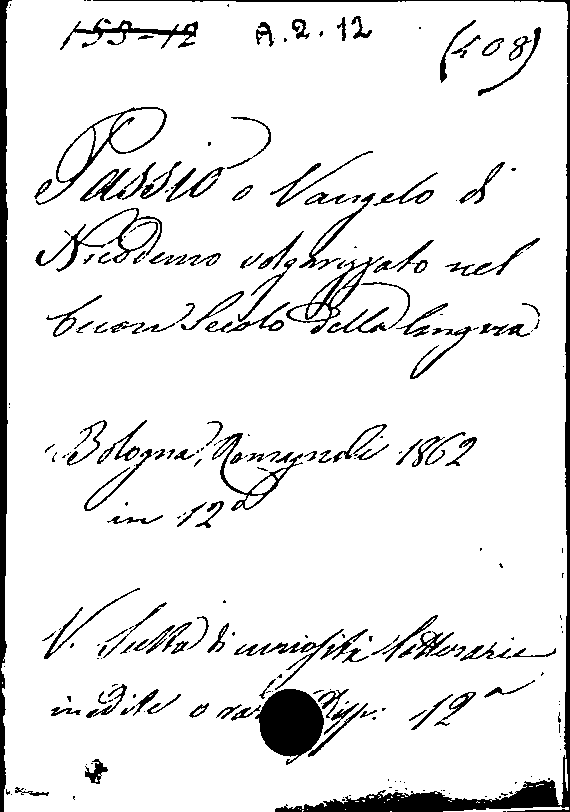 155-12 A.2.12 (408)
Passio o Vangelo di
Nicodemo volgarizzato nel
buon Secolo della lingua
Bologna, Romagnoli 1862
in 12°
V. Scelta di curiosità letterarie
inedite o rare Disp: 12ª